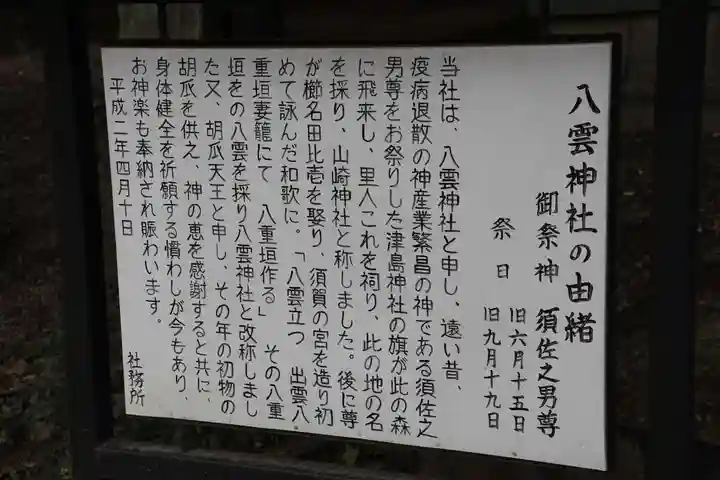 八雲神社の由緒
御祭神　須佐之男尊
祭日　旧六月十五日
旧九月十九日
当社は、八雲神社と申し、遠い昔、
疫病退散の神産業繁昌の神である須佐之
男尊をお祭りした津島神社の旗が此の森
に飛来し、里人これを祠り、此の地の名
を採り、山崎神社と称しました。後に尊
が櫛名田比壱を娶り、須賀の宮を造り初
めて詠んだ和歌に。「八雲立つ　出雲八
重垣妻籠にて　八重垣作る」　その八重
垣をの八雲を採り八雲神社と改称しまし
た又、胡瓜天王と申し、その年の初物の
胡瓜を供え、神の恵を感謝すると共に、
身体健全を祈願する慣わしが今もあり、
お神楽も奉納され賑わいます。
平成二年四月十日
社務所